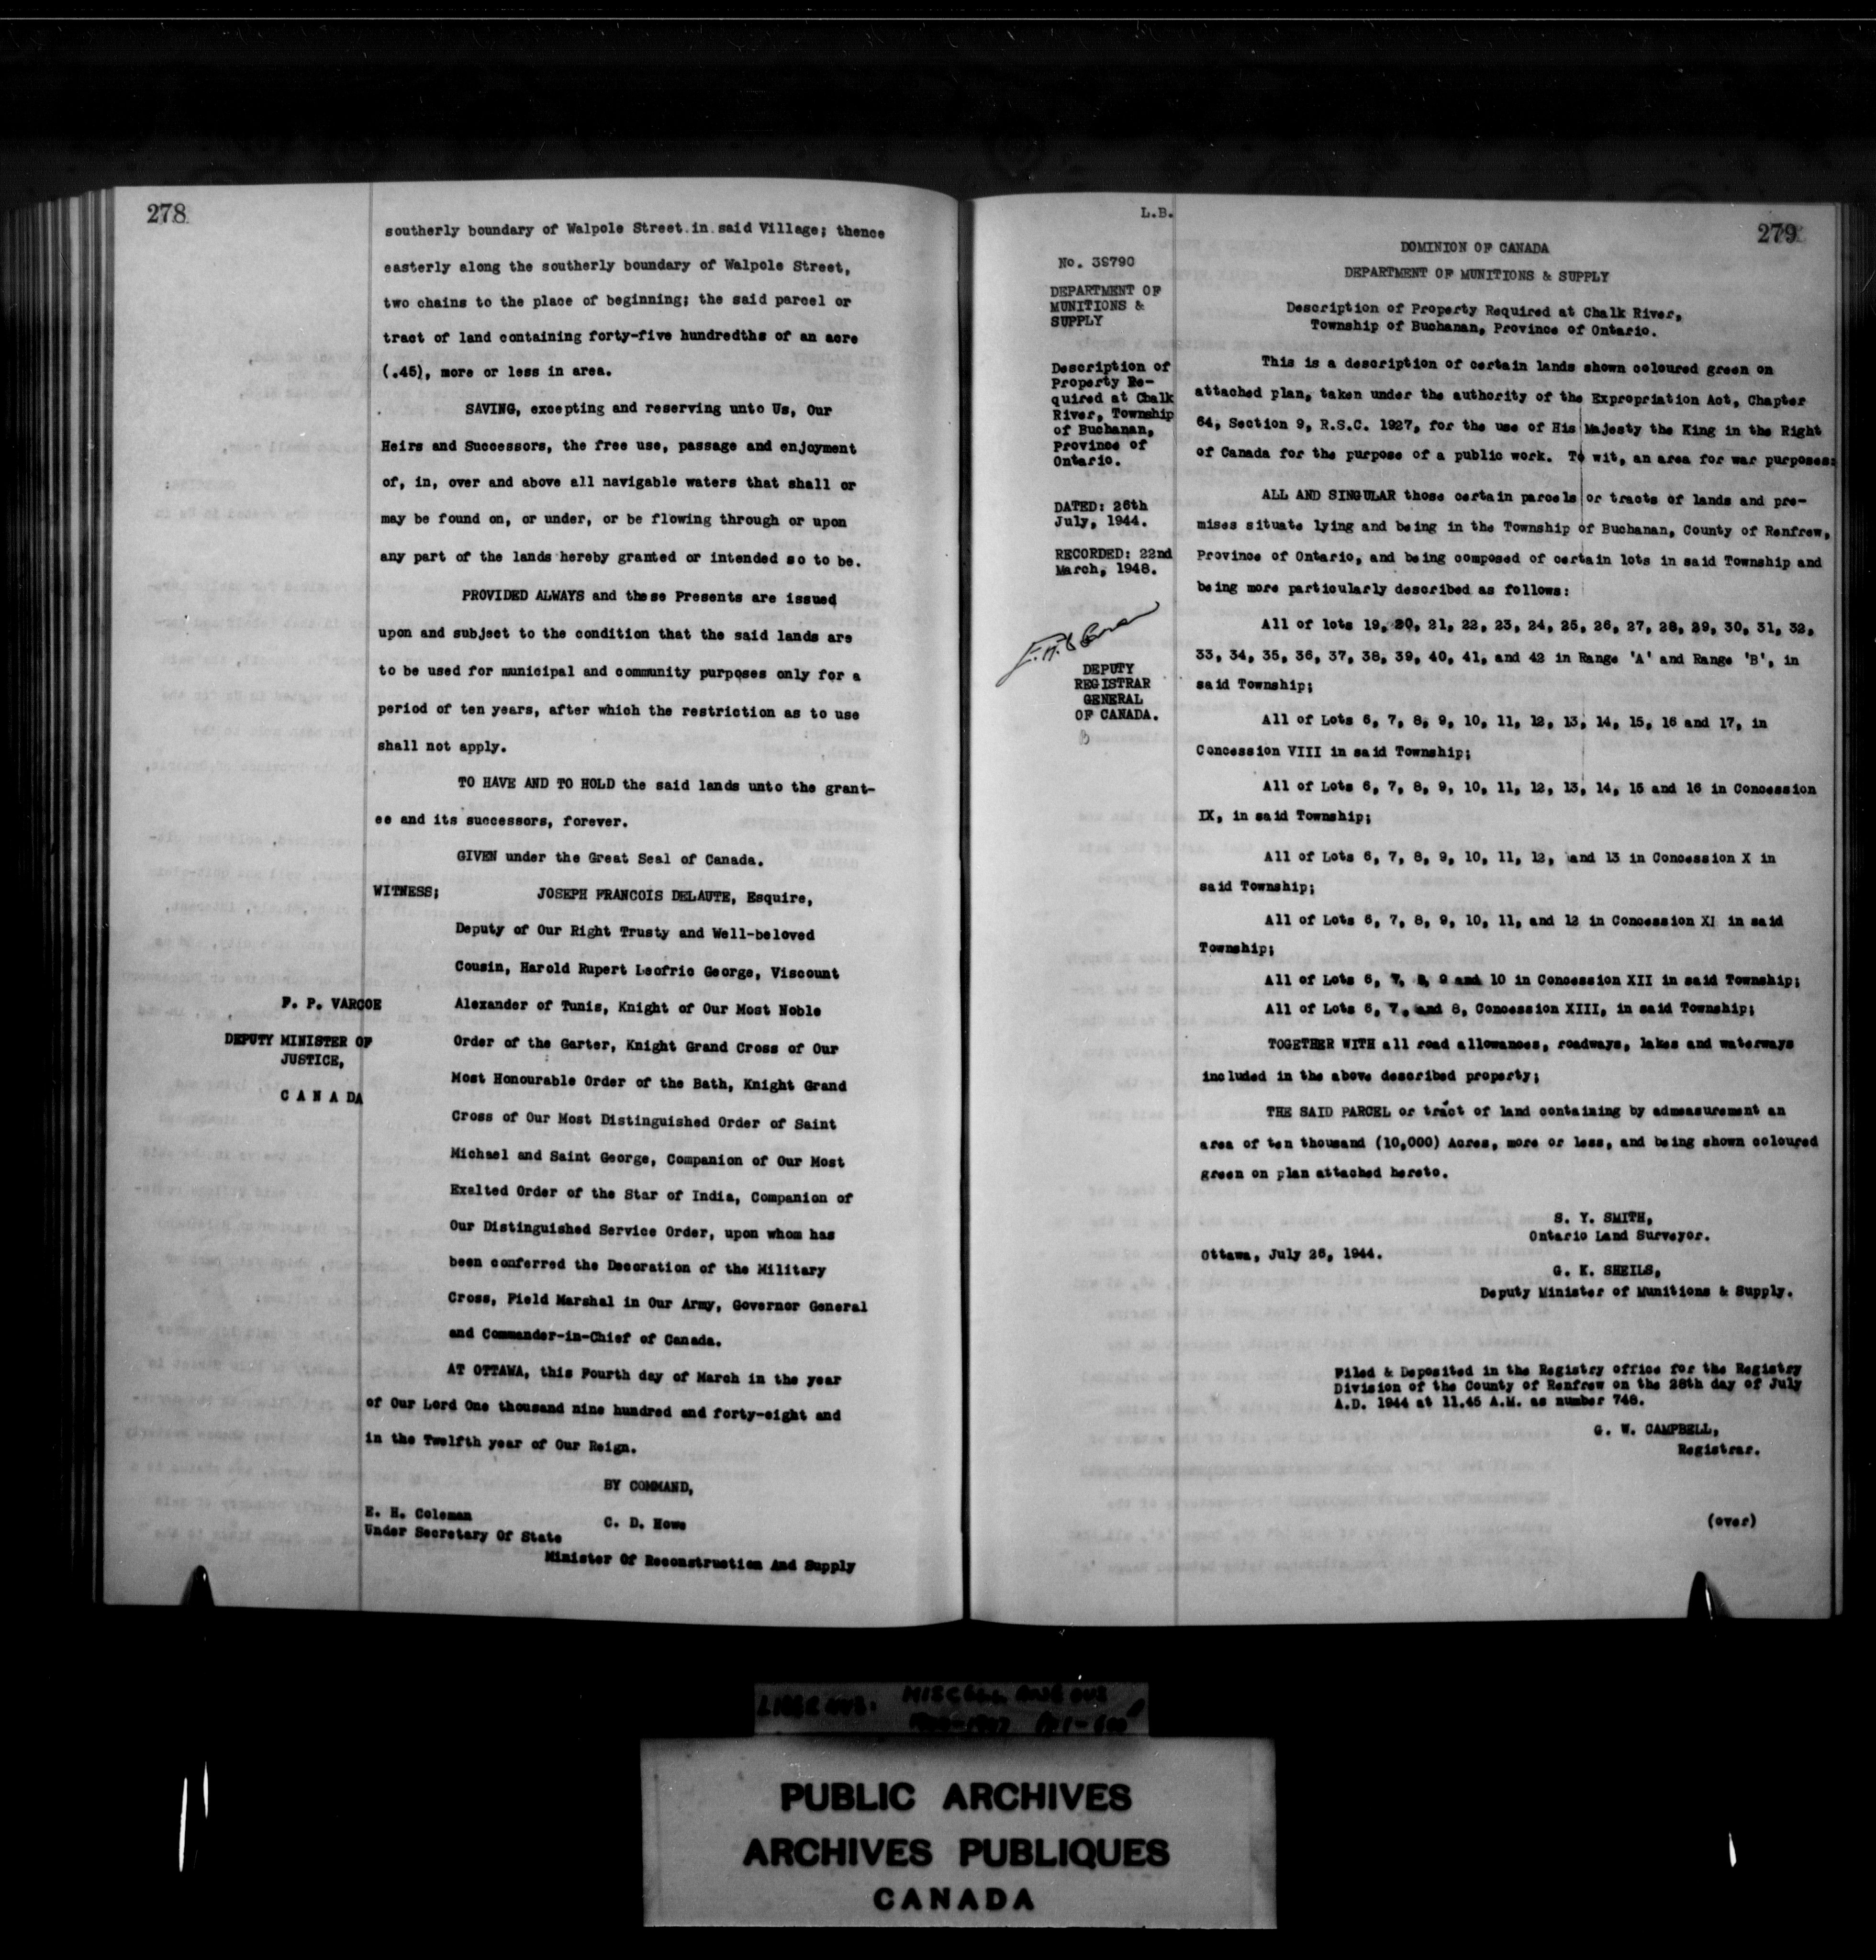 278
southerly boundary of Walpole Street in said Village; thence
easterly along the southerly boundary of Walpole Street,
two chains to the place of beginning; the said parcel or
tract of land containing forty-five hundredths of an acre
(.45), more or less in area.
SAVING, excepting and reserving unto Us, Our
Heirs and Successors, the free use, passage and enjoyment
of, in, over and above all navigable waters that shall or
may be found on, or under, or be flowing through or upon
any part of the lands hereby granted or intended so to be.
PROVIDED ALWAYS and these Presents are issued
upon and subject to the condition that the said lands are
to be used for municipal and community purposes only for a
period of ten years, after which the restriction as to use
shall not apply.
TO HAVE AND TO HOLD the said lands unto the grant-
ee and its successors, forever.
GIVEN under the Great Seal of Canada.
WITNESS; JOSEPH FRANCOIS DELAUTE, Esquire,
Deputy of Our Right Trusty and Well-beloved
Cousin, Harold Rupert Leofric George, Viscount
Alexander of Tunis, Knight of Our Most Noble
Order of the Garter, Knight Grand Cross of Our
Most Honourable Order of the Bath, Knight Grand
Cross of Our Most Distinguished Order of Saint
Michael and Saint George, Companion of Our Most
Exalted Order of the Star of India, Companion of
Our Distinguished Service Order, upon whom has
been conferred the Decoration of the Military
Cross, Field Marshal in Our Army, Governor General
and Commander-in-Chief of Canada.
F. P. VARCOE
DEPUTY MINISTER OF
JUSTICE,
CANADA
AT OTTAWA, this Fourth day of March in the year
of Our Lord One thousand nine hundred and forty-eight and
in the Twelfth year of Our Reign.
BY COMMAND,
E. H. Coleman
Under Secretary Of State
C. D. Howe
Minister Of Reconstruction And Supply
L.B.
279
No. 38790
DEPARTMENT OF
MUNITIONS &
SUPPLY
Description of
Property Re-
quired at Chalk
River, Township
of Buchanan,
Province of
Ontario.
DATED: 26th
July, 1944.
RECORDED: 22nd
March, 1948.
DEPUTY
REGISTRAR
GENERAL
OF CANADA.
DOMINION OF CANADA
DEPARTMENT OF MUNITIONS & SUPPLY
Description of Property Required at Chalk River,
Township of Buchanan, Province of Ontario.
This is a description of certain lands shown coloured green on
attached plan, taken under the authority of the Expropriation Act, Chapter
64, Section 9, R.S.C. 1927, for the use of His Majesty the King in the Right
of Canada for the purpose of a public work. To wit, an area for war purposes:
ALL AND SINGULAR those certain parcels or tracts of lands and pre-
mises situate lying and being in the Township of Buchanan, County of Renfrew,
Province of Ontario, and being composed of certain lots in said Township and
being more particularly described as follows:
All of lots 19, 20, 21, 22, 23, 24, 25, 26, 27, 28, 29, 30, 31, 32,
33, 34, 35, 36, 37, 38, 39, 40, 41, and 42 in Range 'A' and Range 'B', in
said Township;
All of Lots 6, 7, 8, 9, 10, 11, 12, 13, 14, 15, 16 and 17, in
Concession VIII in said Township;
All of Lots 6, 7, 8, 9, 10, 11, 12, 13, 14, 15 and 16 in Concession
IX, in said Township;
All of Lots 6, 7, 8, 9, 10, 11, 12, and 13 in Concession X in
said Township;
All of Lots 6, 7, 8, 9, 10, 11, and 12 in Concession XI in said
Township;
All of Lots 6, 7, 8, 9 and 10 in Concession XII in said Township;
All of Lots 6, 7, and 8, Concession XIII, in said Township;
TOGETHER WITH all road allowances, roadways, lakes and waterways
included in the above described property;
THE SAID PARCEL or tract of land containing by admeasurement an
area of ten thousand (10,000) Acres, more or less, and being shown coloured
green on plan attached hereto.
S. Y. SMITH,
Ontario Land Surveyor.
Ottawa, July 26, 1944.
G. K. SHEILS,
Deputy Minister of Munitions & Supply.
Filed & Deposited in the Registry office for the Registry
Division of the County of Renfrew on the 28th day of July
A.D. 1944 at 11.45 A.M. as number 748.
G. W. CAMPBELL,
Registrar.
(over)
PUBLIC ARCHIVES
ARCHIVES PUBLIQUES
CANADA